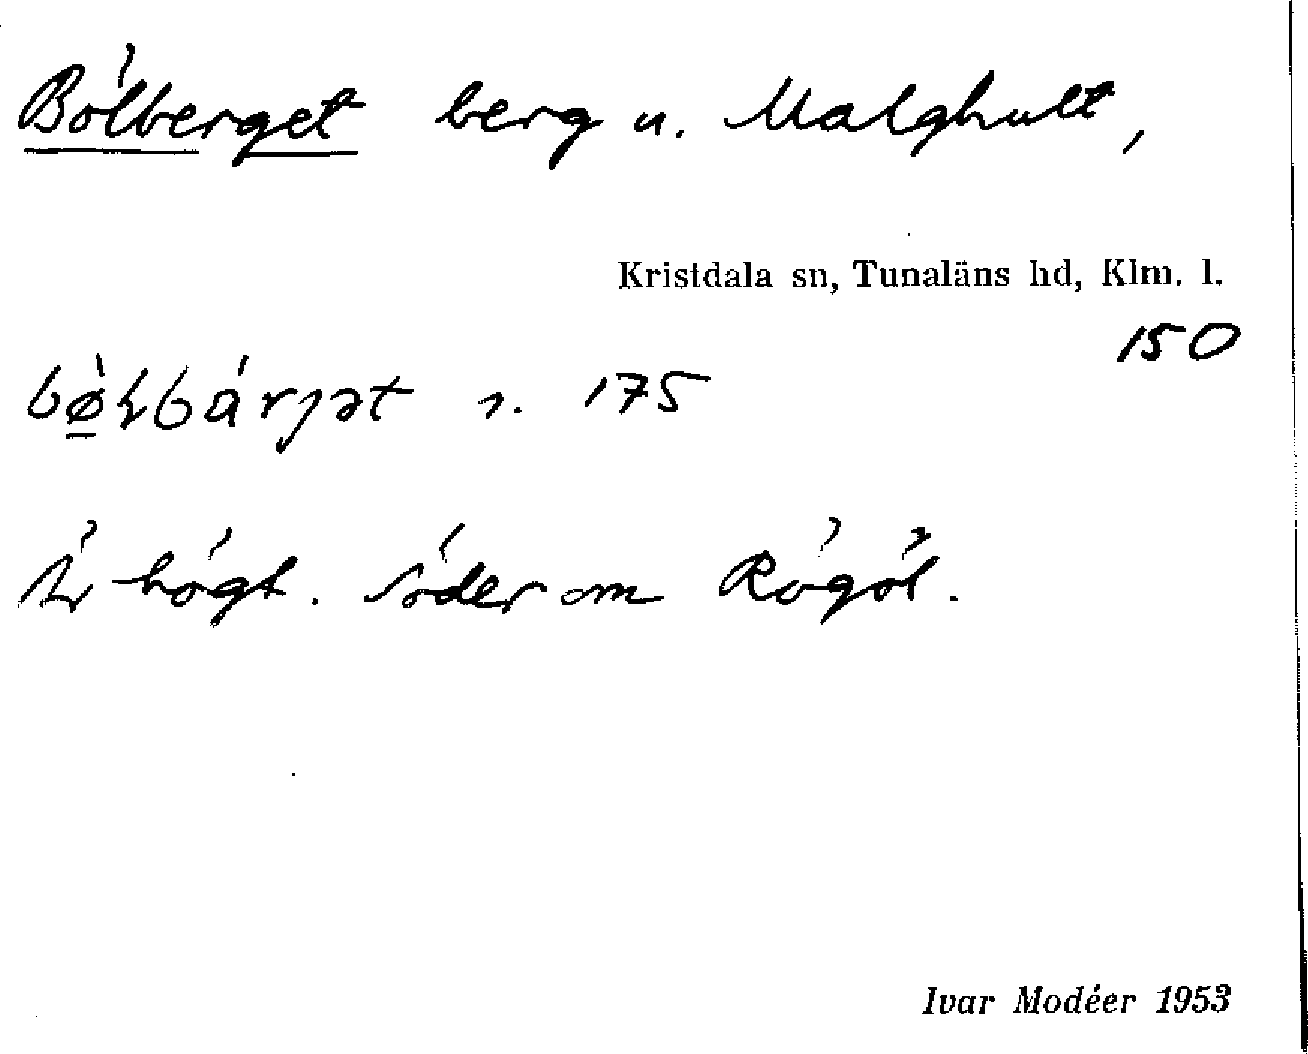 Bölberget berg u. Malghult,
Kristdala sn, Tunaläns hd, Klm. l.
150
s. 175
Är högt. Söder om Rögöl.
Ivar Modéer 1953